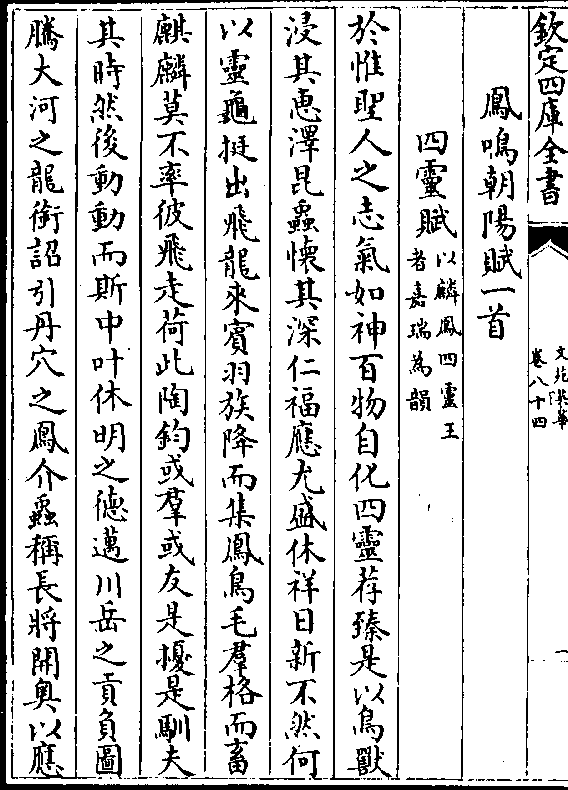 欽定四庫全書
文苑英華
卷八十四
一
鳳鳴朝陽賦一首
四靈賦
以麟鳳四靈王
者嘉瑞為韻
於惟聖人之志氣如神百物自化四靈荐臻是以鳥獸
浸其恵澤昆蟲懷其深仁福應尤盛休祥日新不然何
以靈龜挺出飛龍來賓羽族降而集鳳鳥毛羣格而畜
麒麟莫不率彼飛走荷此陶鈞或羣或友是擾是馴夫
其時然後動動而斯中叶休明之德邁川岳之貢負圖
騰大河之龍銜詔引丹穴之鳳介蟲稱長將開奥以應